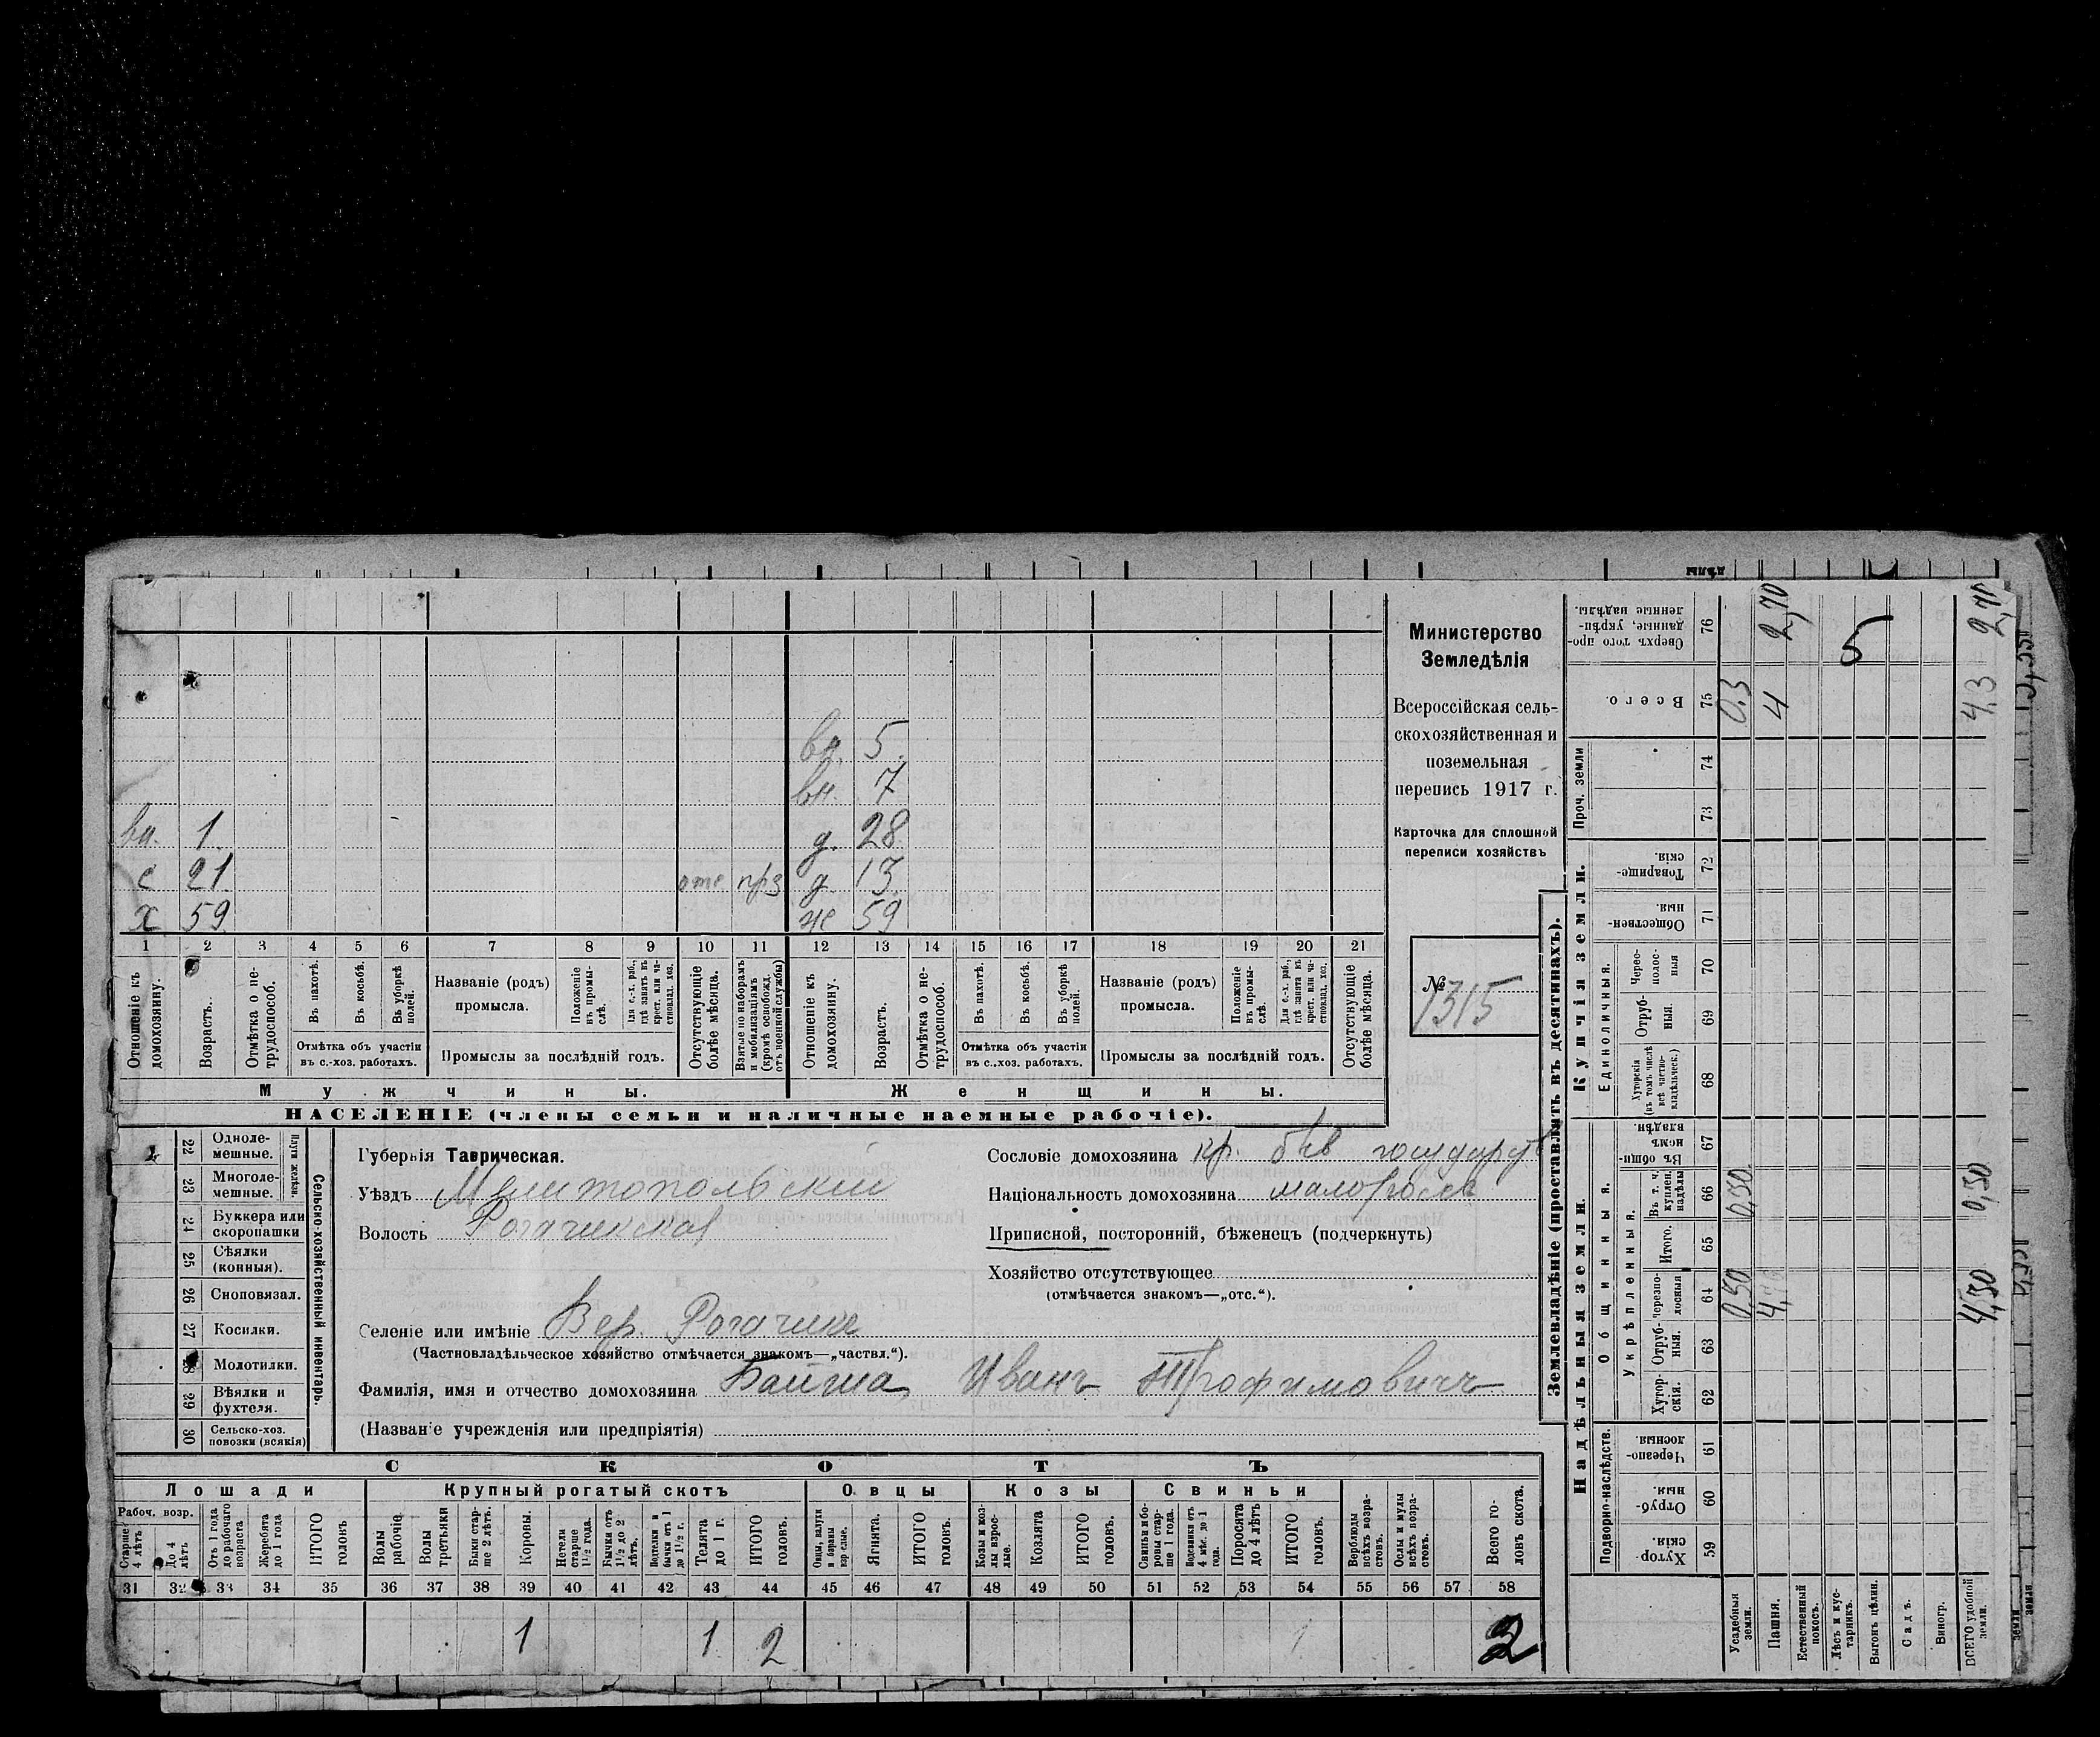 Министерство
Земледѣлія
Всероссійская сель-
скохозяйственная и
поземельная
перепись 1917 г.
Карточка для сплошной
переписи хозяйствъ
№ 1315
вн. 5
вн. 7
вн. 1 д. 28
с 21 отс д 13
х 59 же 59
1 2 3 4 5 6 7 8 9 10 11 12 13 14 15 16 17 18 19 20 21
Отношеніе къ домохозяину.
Возрастъ.
Отмѣтка о не-трудоспособ.
Въ пахотѣ.
Въ косьбѣ.
Въ уборкѣ полей.
Отмѣтка объ участіи въ с.-хоз. работахъ.
Названіе (родъ) промысла.
Положеніе въ промыслѣ.
Для с.-х. раб., гдѣ занятъ въ крест. или частновлад. хоз.
Промыслы за послѣдній годъ.
Отсутствующіе болѣе мѣсяца.
Взятые по наборамъ и мобилизаціямъ (кромѣ освобожд. отъ военной службы)
Отношеніе къ домохозяину.
Возрастъ.
Отмѣтка о не-трудоспособ.
Въ пахотѣ.
Въ косьбѣ.
Въ уборкѣ полей.
Отмѣтка объ участіи въ с.-хоз. работахъ.
Названіе (родъ) промысла.
Положеніе въ промыслѣ.
Для с.-х. раб., гдѣ занята въ крест. или частновлад. хоз.
Промыслы за послѣдній годъ.
Отсутствующіе болѣе мѣсяца.
Мужчины. Женщины.
НАСЕЛЕНІЕ (члены семьи и наличные наемные рабочіе).
22 Одноле-мешные.
23 Многоле-мешные.
Плуги желѣзн.
24 Буккера или скоропашки
25 Сѣялки (конныя).
26 Сноповязал.
27 Косилки.
28 Молотилки.
29 Вѣялки и фухтеля.
30 Сельско-хоз. повозки (всякія)
Сельско-хозяйственный инвентарь.
Губернія Таврическая.
Уѣздъ Мелитопольскій
Волость Рогачикская
Селеніе или имѣніе Вер. Рогачикъ
(Частновладѣльческое хозяйство отмѣчается знакомъ—„частвл.“).
Фамилія, имя и отчество домохозяина Байша Иванъ Трофимовичъ
(Названіе учрежденія или предпріятія)
Сословіе домохозяина кр. быв государств
Національность домохозяина малороссъ
Приписной, посторонній, бѣженец (подчеркнуть)
Хозяйство отсутствующее
(отмѣчается знакомъ—„отс.“).
СКОТЪ
Лошади Крупный рогатый скотъ Овцы Козы Свиньи
Рабоч. возр.
Старше 4 лѣтъ
До 4 лѣтъ
Отъ 1 года до рабочаго возраста
Жеребята до 1 года
ИТОГО головъ
Волы рабочіе.
Волы третьяки
Быки стар-ше 2 лѣтъ.
Коровы.
Нетели старше 1½ года.
Бычки отъ 1½ до 2 лѣтъ.
Водтелки и бычки отъ 1 до 1½ г.
Телята до 1 г.
ИТОГО головъ.
Овцы, валухи и бараны взрослые.
Ягнята.
ИТОГО головъ.
Козы и коз-лы взрос-лые.
Козлята
ИТОГО головъ.
Свиньи и бо-ровы стар-ше 1 года.
Подсвинки отъ 4 мѣс. до 1 года.
Поросята до 4 лѣтъ
ИТОГО головъ.
Верблюды всѣхъ возра-стовъ.
Ослы и мулы всѣхъ возра-стовъ.
Всего го-ловъ скота.
31 32 33 34 35 36 37 38 39 40 41 42 43 44 45 46 47 48 49 50 51 52 53 54 55 56 57 58
1 1 2 1 2
Землевладѣніе (проставлять въ десятинахъ).
Надѣльныя земли.
Подворно-наслѣдств.
Хутор-скія. 59
Отруб-ныя. 60
Черезпо-лосныя. 61
Общинныя.
Укрѣпленныя.
Хутор-скія. 62
Отруб-ныя. 63
Черезпо-лосныя 64 0,50 4,50
Итого. 65
Въ т. ч. куплен. надѣлы 66 0,50 0,50
Въ общин-номъ владѣн. 67
Купчія земли.
Единоличныя.
Хуторскія (въ томъ числѣ всѣ частно-владѣльческ.) 68
Отруб-ныя. 69
Черес-полос-ныя 70
Обществен-ныя. 71
Товарище-скія. 72
Проч. земли 73 74
Всего. 75 0,3 4 4,3
Сверхъ того про-данные, укрѣп-ленные надѣлы. 76 2,70 5 2,70
Усадебныя земли.
Пашня.
Естественный покосъ.
Лѣсъ и кус-тарникъ.
Выгонъ цѣлин.
Садъ.
Виногр.
ВСЕГО удобной земли.